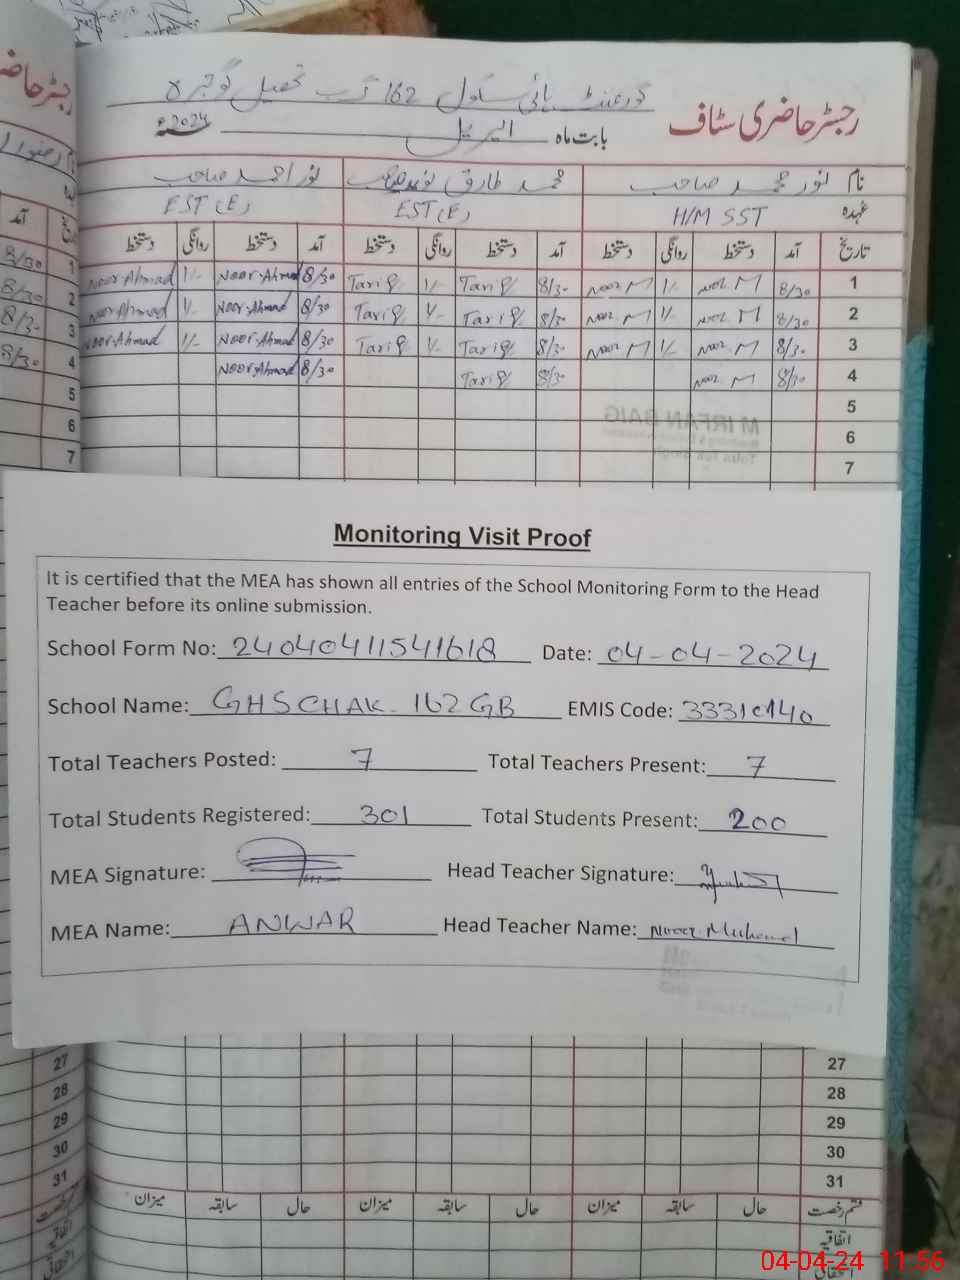 گورنمنٹ ہائی سکول 162 گ ب تحصیل گوجرہ
رجسٹر حاضری سٹاف
بابت ماہ اپریل 2024ء
نام نور محمد صاحب محمد طارق نور احمد صاحب
عہدہ H/M SST EST(E) EST(E)
تاریخ آمد دستخط روانگی دستخط آمد دستخط روانگی دستخط آمد دستخط روانگی دستخط
1 8/30 Noor. M 1/- Noor. M 8/30 Tariq 1/- Tariq 8/30 Noor-Ahmad 1/- Noor-Ahmad
2 8/30 Noor. M 1/- Noor. M 8/30 Tariq 1/- Tariq 8/30 Noor-Ahmad 1/- Noor-Ahmad
3 8/30 Noor. M 1/- Noor. M 8/30 Tariq 1/- Tariq 8/30 Noor-Ahmad 1/- Noor-Ahmad
4 8/30 Noor. M 8/30 Tariq 8/30 Noor-Ahmad
5
6
7
Monitoring Visit Proof
It is certified that the MEA has shown all entries of the School Monitoring Form to the Head
Teacher before its online submission.
School Form No: 24040411541618 Date: 04-04-2024
School Name: GHS CHAK 162 GB EMIS Code: 33310140
Total Teachers Posted: 7 Total Teachers Present: 7
Total Students Registered: 301 Total Students Present: 200
MEA Signature: Head Teacher Signature:
MEA Name: ANWAR Head Teacher Name: Noor Muhamad
27
28
29
30
31
قسم رخصت حال سابقہ میزان حال سابقہ میزان حال سابقہ میزان
اتفاقیہ
04-04-24 11:56